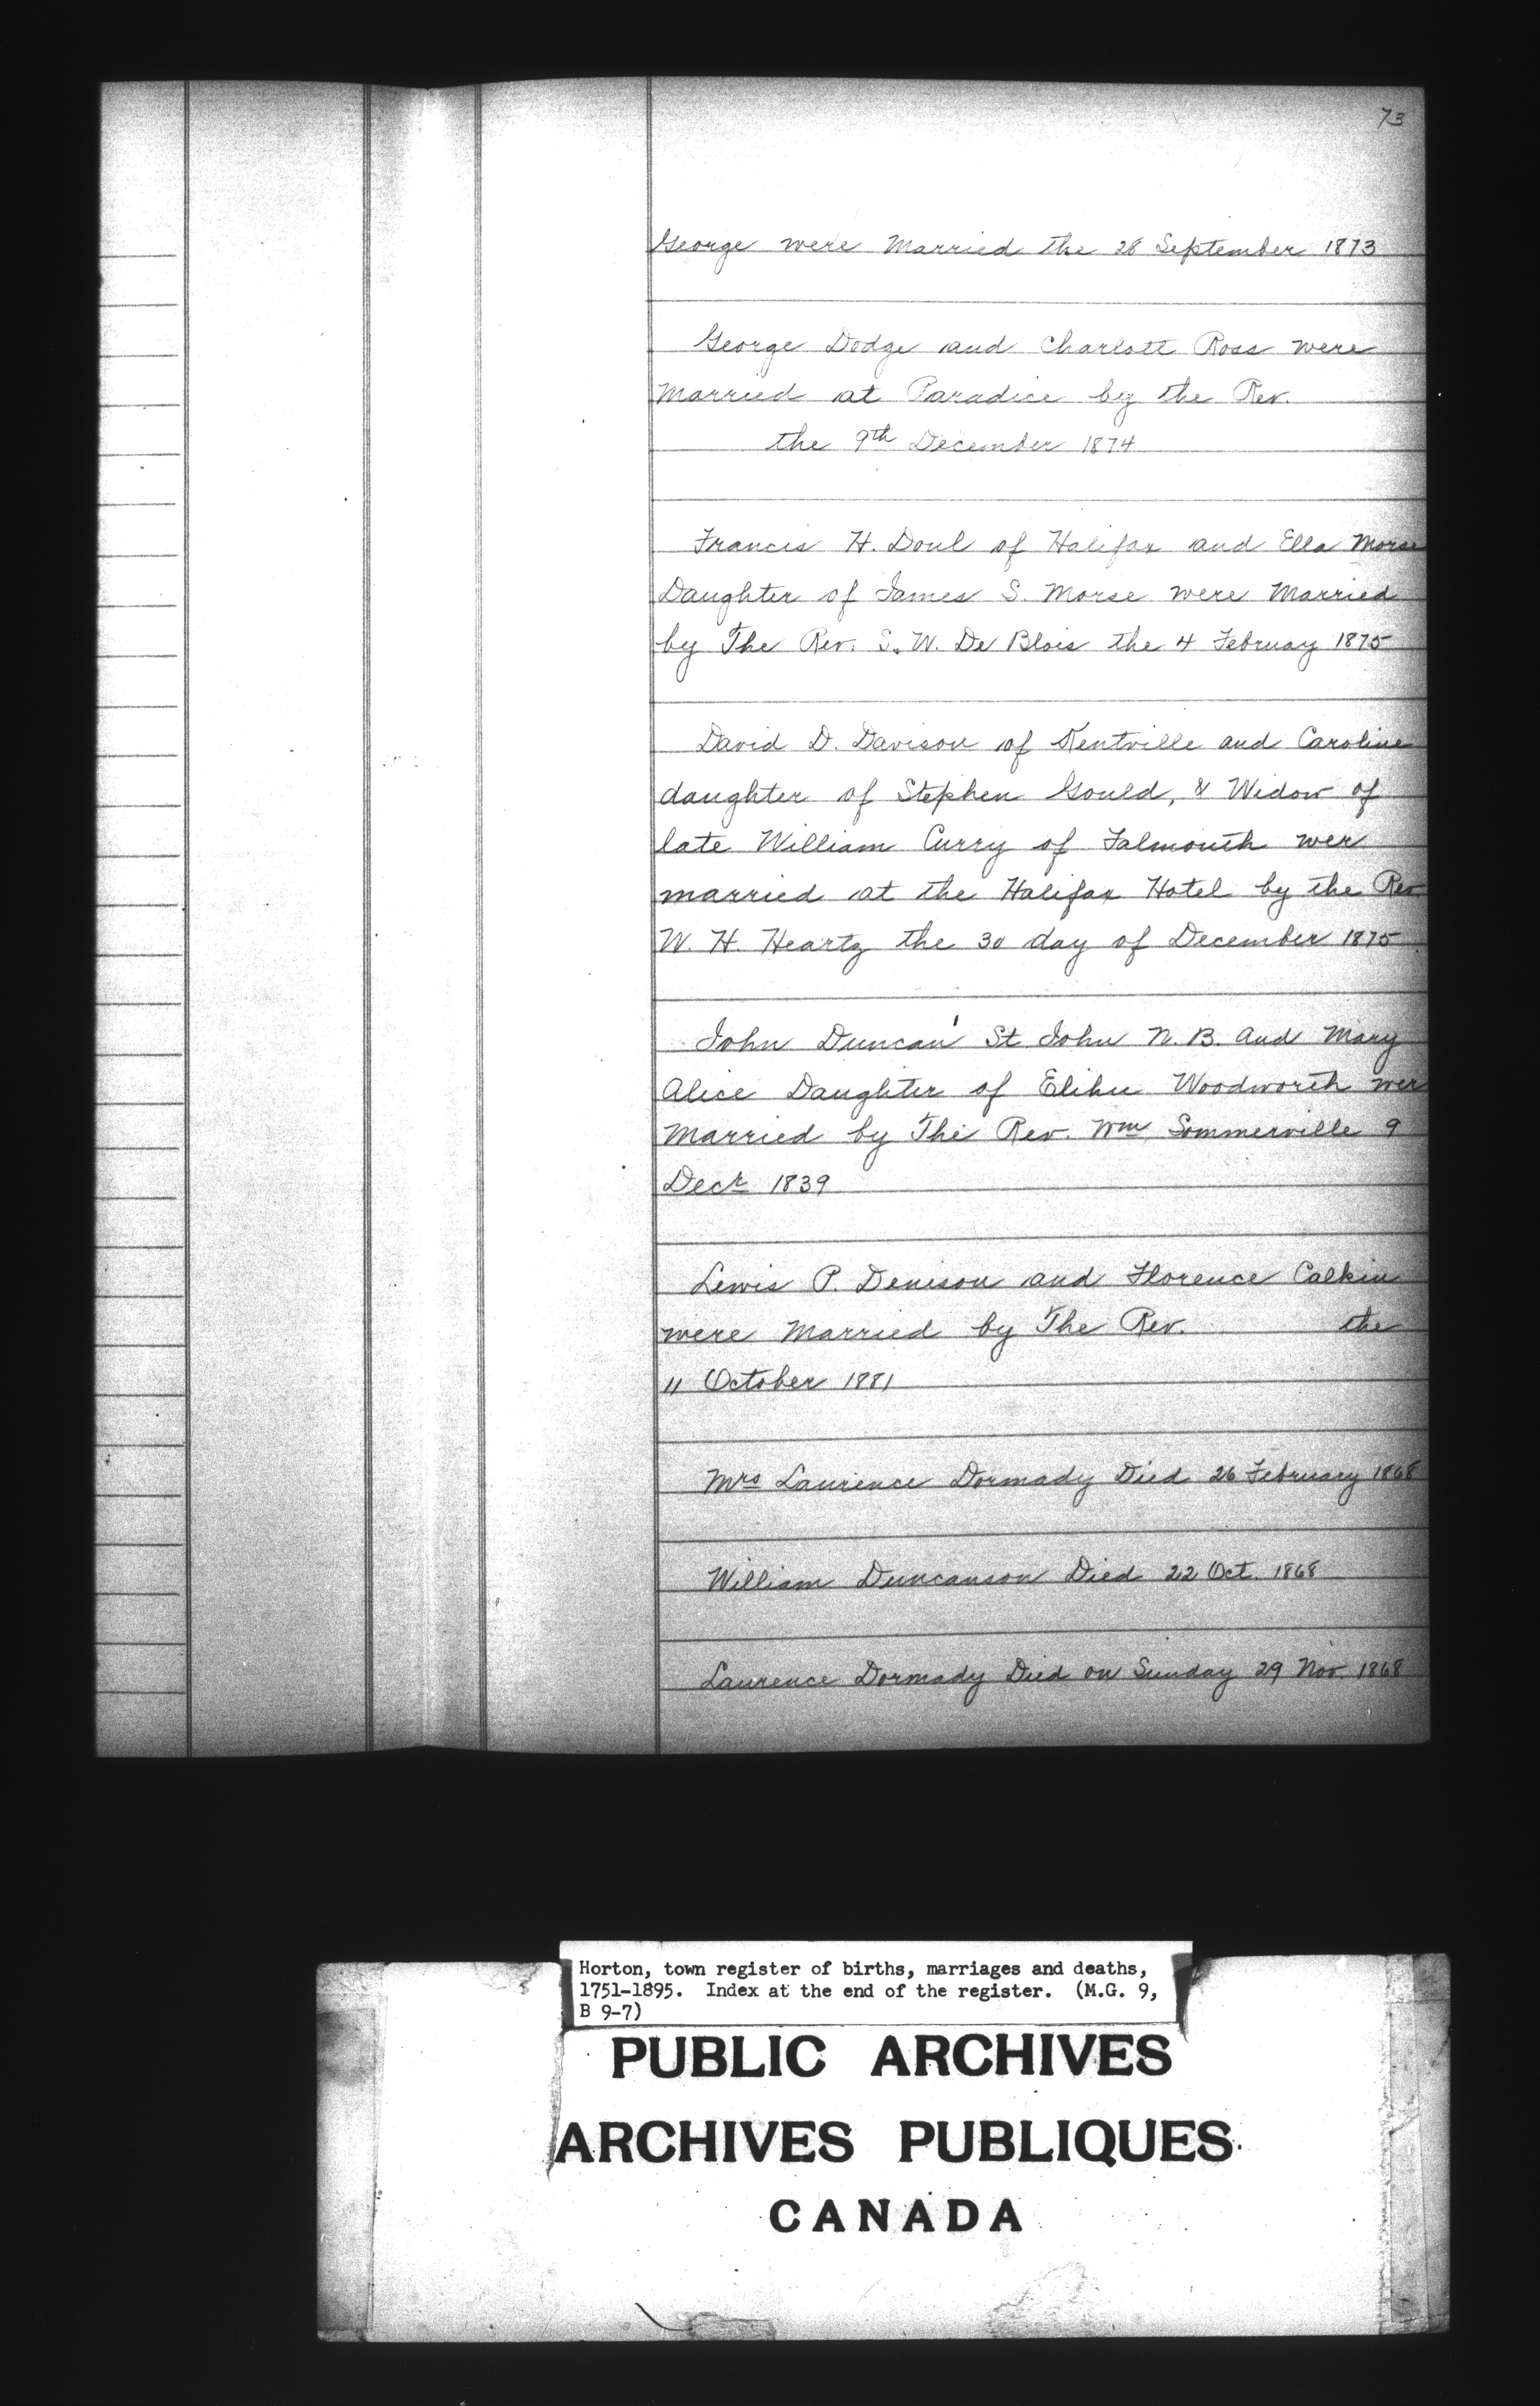 73
George were Married the 28 September 1873
George Dodge and Charlott Ross were
Married at Paradice by the Rev.
the 9th December 1874
Francis H. Doul of Halifax and Ella Morse
Daughter of James S. Morse were Married
by The Rev. S. W. De Blois the 4 Februay 1875
David D. Davison of Kentville and Caroline
daughter of Stephen Gould, & Widow of
late William Curry of Falmouth wer
married at the Halifax Hotel by the Rev
W. H. Heartz the 30 day of December 1875
John Duncan St John N. B. and Mary
Alice Daughter of Elihu Woodworth wer
Married by The Rev. Wm Sommerville 9
Decr 1839
Lewis P. Denison and Florence Calkin
were Married by The Rev. the
11 October 1881
Mrs Laurence Dormady Died 26 February 1868
William Duncanson Died 22 Oct. 1868
Laurence Dormady Died on Sunday 29 Nov. 1868
Horton, town register of births, marriages and deaths,
1751-1895. Index at the end of the register. (M.G. 9,
B 9-7)
PUBLIC ARCHIVES
ARCHIVES PUBLIQUES
CANADA